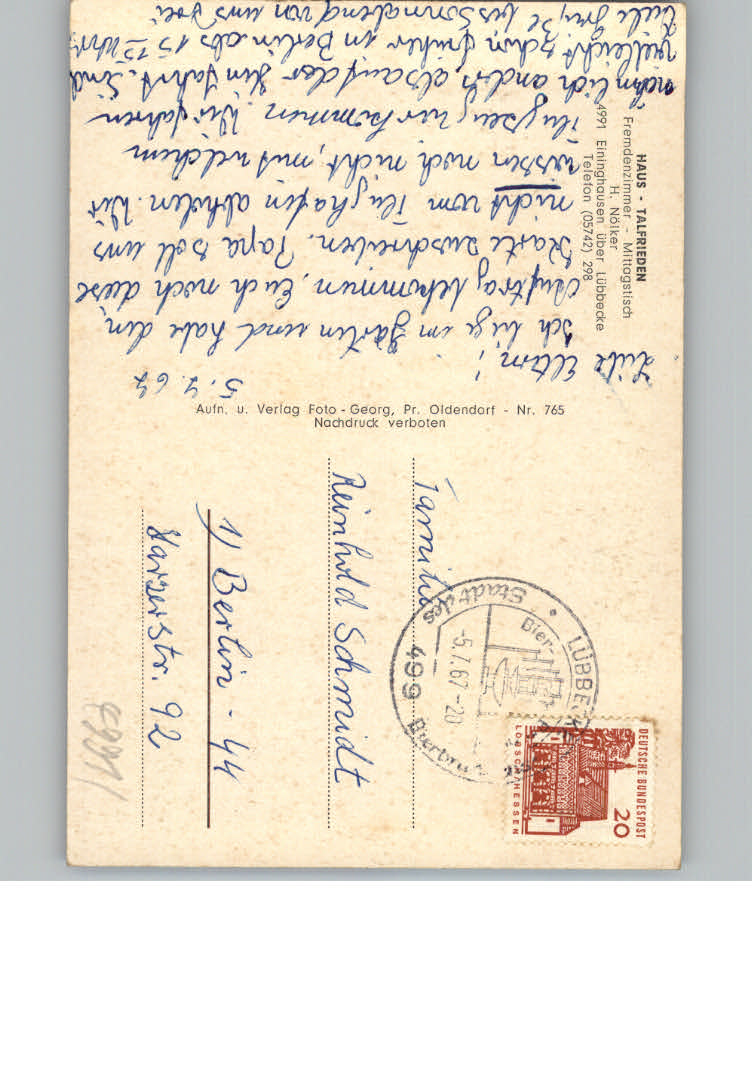 HAUS - TALFRIEDEN
Fremdenzimmer - Mittagstisch
H. Nölker
4991 Eininghausen über Lübbecke
Telefon (05742) 298
5.7.67
Liebe Eltern!
Ich liege im Garten und habe den
Auftrag bekommen, Euch noch diese
Karte zu schreiben. Papa soll uns
nicht vom Flughafen abholen. Wir
wissen noch nicht, mit welchem
Flugzeug wir kommen. Wir fahren
nämlich anders, als auf der Hinfahrt. Sind
vielleicht schon früher in Berlin als 15 15 Uhr.
Viele Grüße bis Sonnabend von uns drei
Aufn. u. Verlag Foto-Georg, Pr. Oldendorf - Nr. 765
Nachdruck verboten
DEUTSCHE BUNDESPOST
20
LORSCH/HESSEN
LÜBBECKE
Stadt des
Bier-
499
-5.7.67-20
Familie
Reinhold Schmidt
1) Berlin - 44
Harzerstr. 92